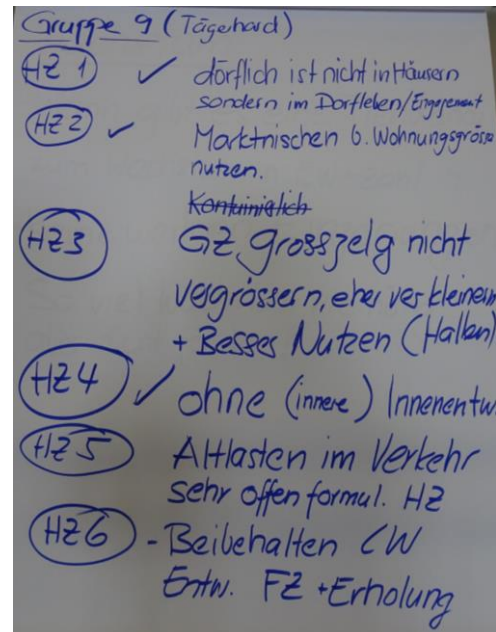 Gruppe 9 (Tägerhard)
HZ 1 ✓ dörflich ist nicht in Häusern
sondern im Dorfleben/Engagement
HZ 2 ✓ Marktnischen b. Wohnungsgrösse
nutzen.
HZ3 GZ Grosszelg nicht
vergrössern, eher verkleinern
+ Besses Nutzen (Hallen)
HZ4 ✓ ohne (innere) Innenentw.
HZ5 Altlasten im Verkehr
sehr offen formul. HZ
HZ6 - Beibehalten LW
Entw. FZ + Erholung